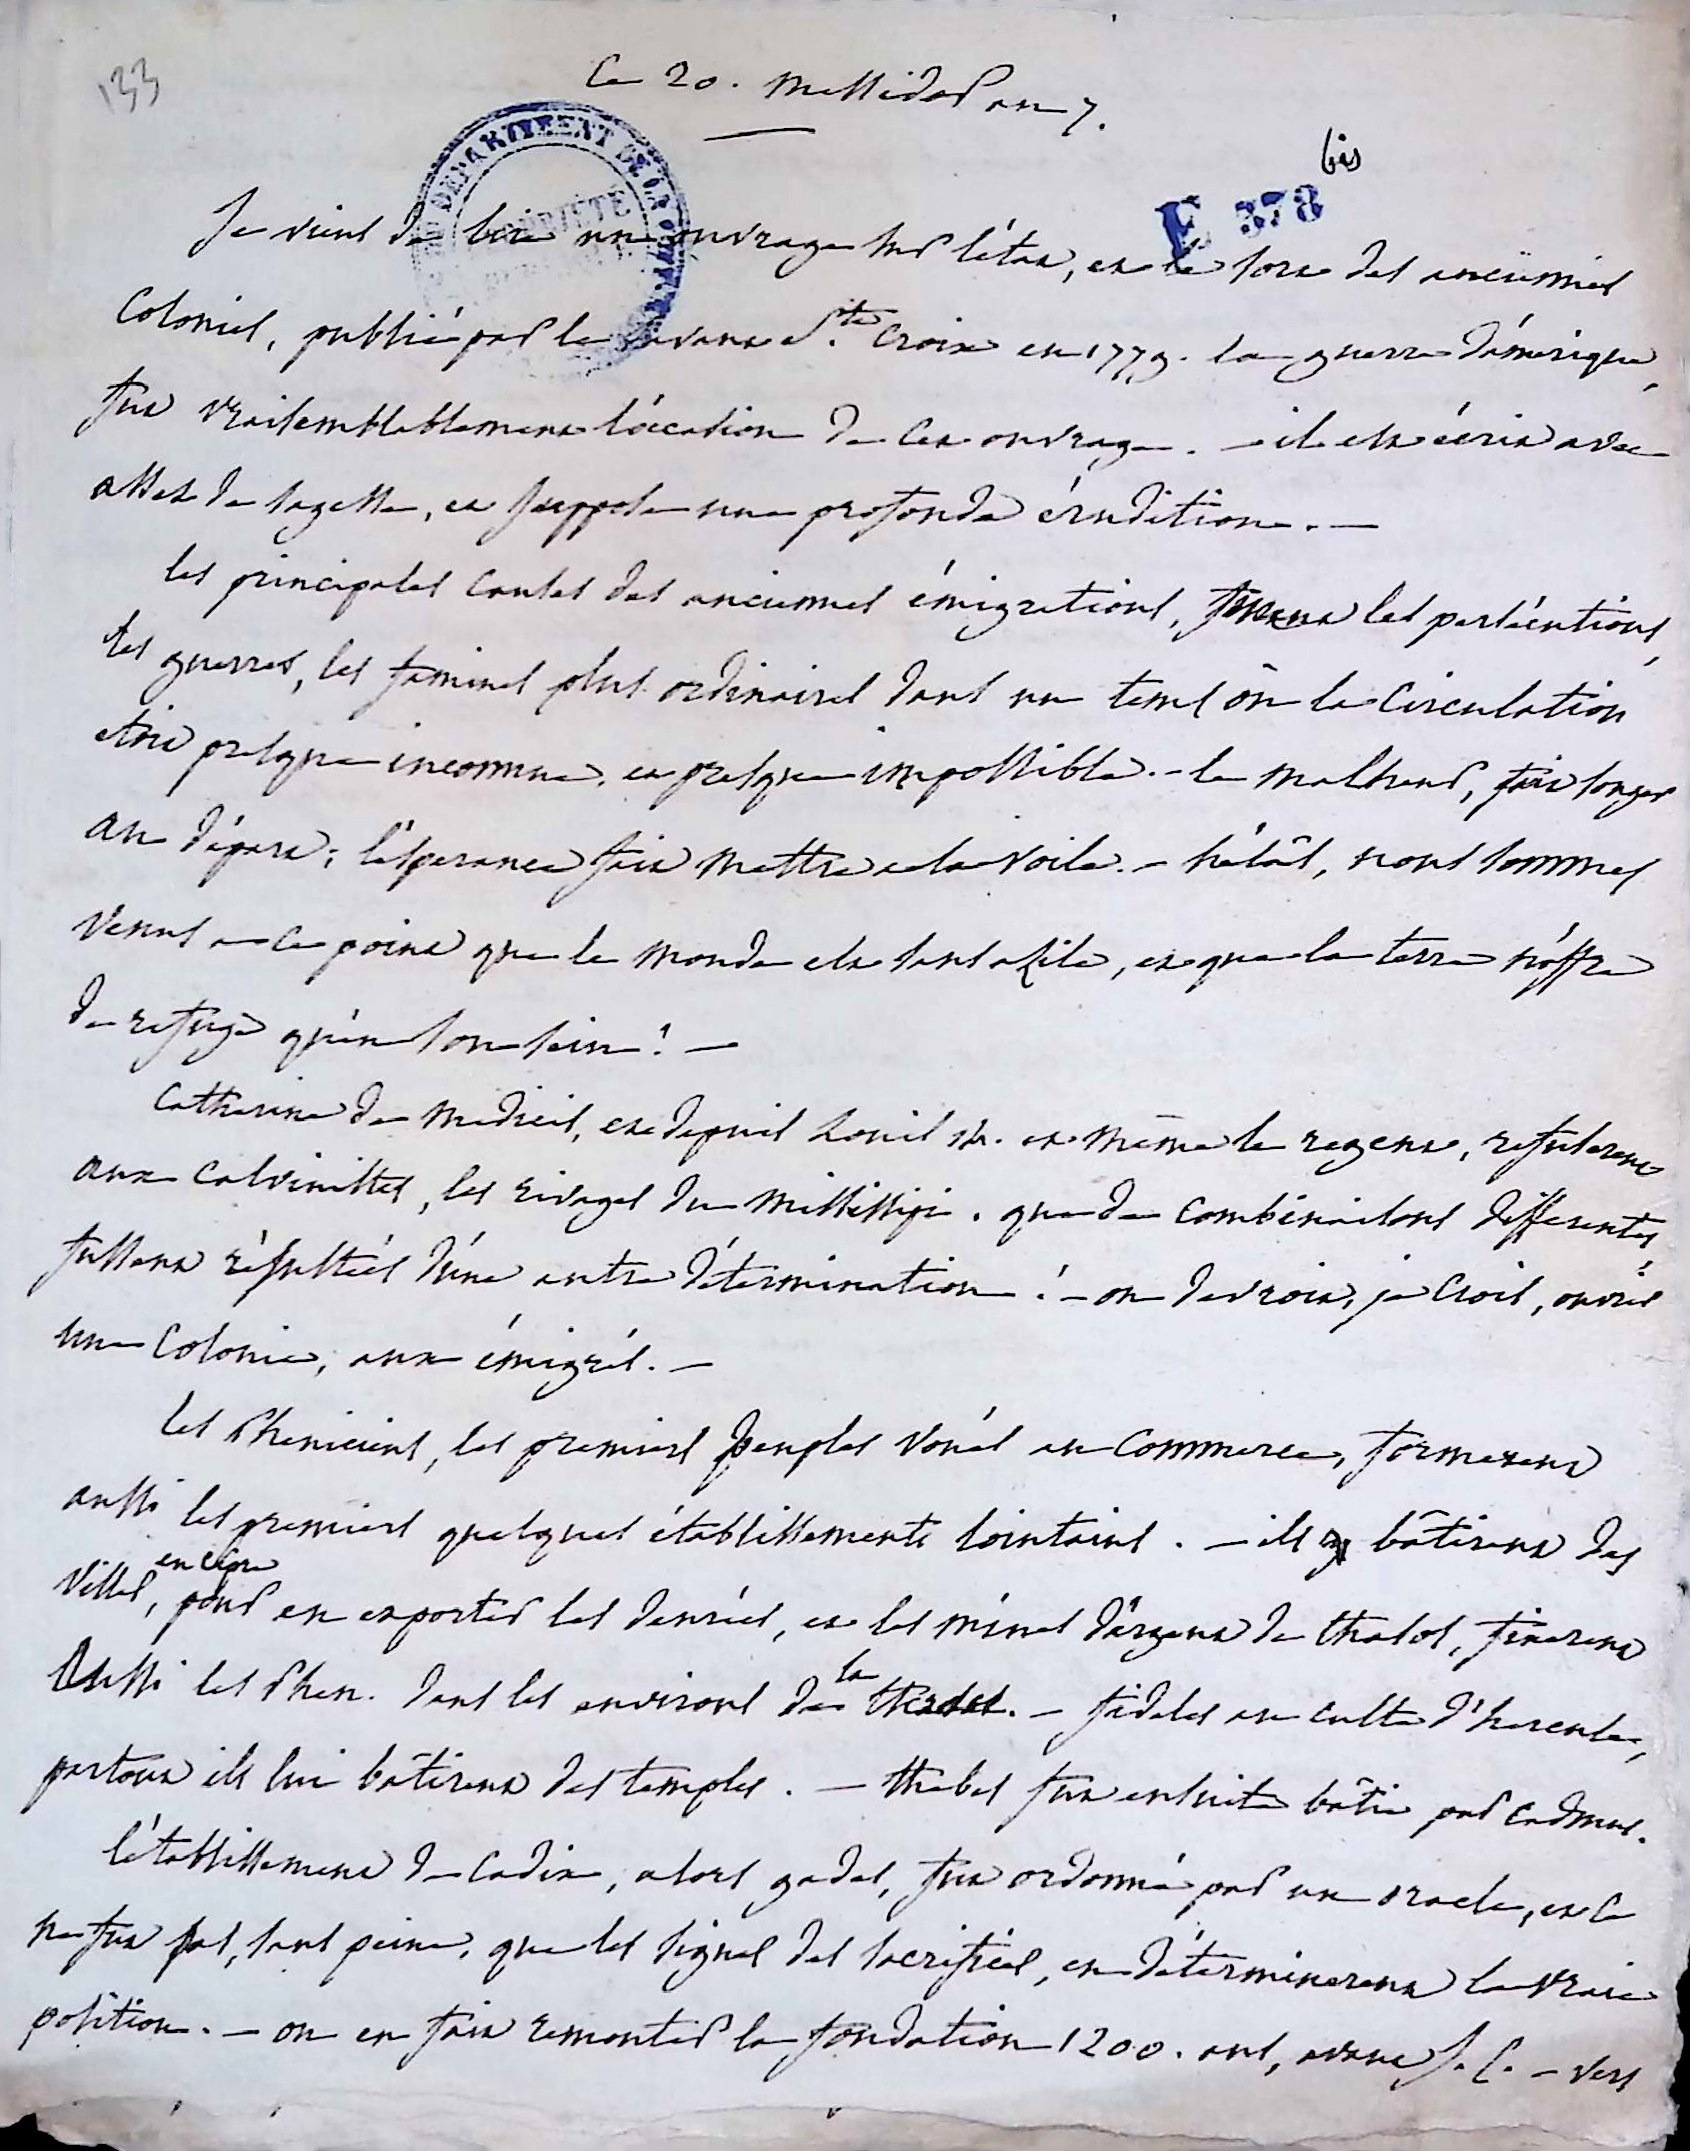 133
Ce 20. messidor an 7.
bis
E 378
DEPARTEMENT DE LA
PROPRIÉTÉ
Je viens de lire un ouvrage sur l'état, et le sort des anciennes
Colonies, publié par le savant Ste Croix en 1779. la guerre d'amérique,
fut vraisemblablement l'occasion de cet ouvrage. – il est écrit avec
assez de sagesse, et suppose une profonde érudition. –
les principales causes des anciennes émigrations, furent les persécutions,
les guerres, les famines plus ordinaires dans un tems où la circulation
etoit presque inconnue, et presque impossible. – le malheur, fait songer
au départ; l'espérance fait mettre a la voile. – hélas, nous sommes
venus a ce point que le monde est sans asile, et que la terre n'offre
de refuge qu'en son sein! –
Catherine de Medicis, et depuis Louis 14. et même le regent, refuserent
aux Calvinistes, les rivages du Mississipi. que de combinaisons differentes
fussent résultées d'une autre détermination! – on devroit, je crois, ouvrir
une Colonie, aux émigrés. –
les Pheniciens, les premiers peuples voués au commerce, formerent
aussi les premiers quelques établissements lointains. – ils bâtirent des
villes, en Cipre pour en exporter les denrées, et les mines d'argent de thasos, fixerent
aussi les Phen. dans les environs de la thrace. – fideles au culte d'hercule,
partout ils lui bâtirent des temples. – thebes fut ensuite bâtie par Cadmus.
l'établissement de Cadix, alors gades, fut ordonné par un oracle, et ce
ne fut pas, sans peine, que les signes des sacrifices, en déterminerent la vraie
position. – on en fait remonter la fondation 1200. ans, avant J. C. – vers